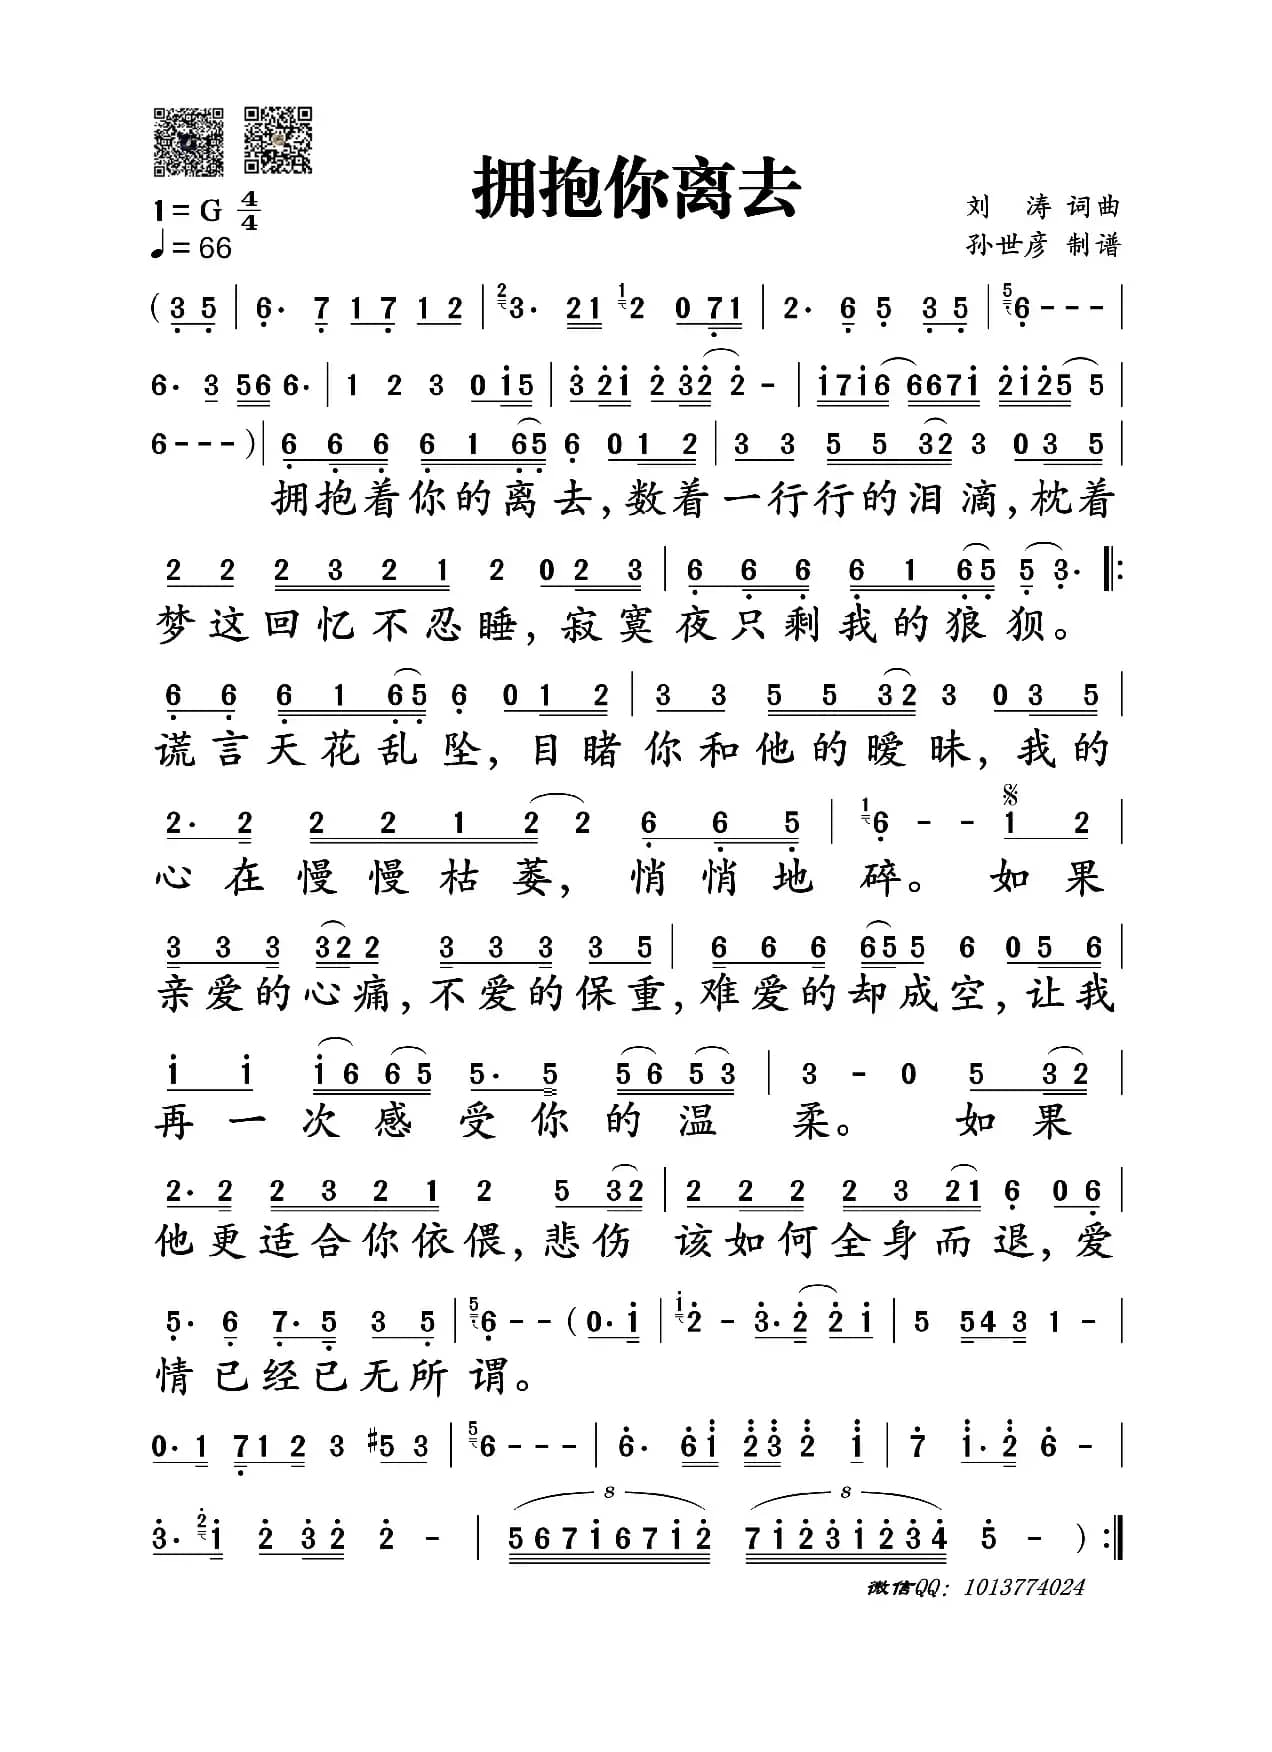 拥抱你离去
1=G 4/4
♩=66
刘 涛 词曲
孙世彦 制谱
( 3 5 | 6. 7 1 7 1 2 | 2 3. 2 1 1 2 0 7 1 | 2. 6 5 3 5 | 5 6 - - - |
6. 3 5 6 6. | 1 2 3 0 1 5 | 3 2 1 2 3 2 2 - | 1 7 1 6 6 6 7 1 2 1 2 5 5 |
6 - - - ) | 6 6 6 6 1 6 5 6 0 1 2 | 3 3 5 5 3 2 3 0 3 5 |
拥抱着你的离去,数着一行行的泪滴,枕着
2 2 2 3 2 1 2 0 2 3 | 6 6 6 6 1 6 5 5 3. ‖:
梦这回忆不忍睡,寂寞夜只剩我的狼狈。
6 6 6 1 6 5 6 0 1 2 | 3 3 5 5 3 2 3 0 3 5 |
谎言天花乱坠,目睹你和他的暧昧,我的
2. 2 2 2 1 2 2 6 6 5 | 1 6 - - 1 2 |
心在慢慢枯萎,悄悄地碎。如果
3 3 3 3 2 2 3 3 3 3 5 | 6 6 6 6 5 5 6 0 5 6 |
亲爱的心痛,不爱的保重,难爱的却成空,让我
1 1 1 6 6 5 5. 5 5 6 5 3 | 3 - 0 5 3 2 |
再一次感受你的温柔。如果
2. 2 2 3 2 1 2 5 3 2 | 2 2 2 2 3 2 1 6 0 6 |
他更适合你依偎,悲伤该如何全身而退,爱
5. 6 7. 5 3 5 | 5 6 - - ( 0. 1 | 1 2 - 3. 2 2 1 | 5 5 4 3 1 - |
情已经已无所谓。
0. 1 7 1 2 3 #5 3 | 5 6 - - - | 6. 6 1 2 3 2 1 | 7 1. 2 6 - |
3. 2 1 2 3 2 2 - | 8 5 6 7 1 6 7 1 2 8 7 1 2 3 1 2 3 4 5 - ) :‖
微信QQ: 1013774024